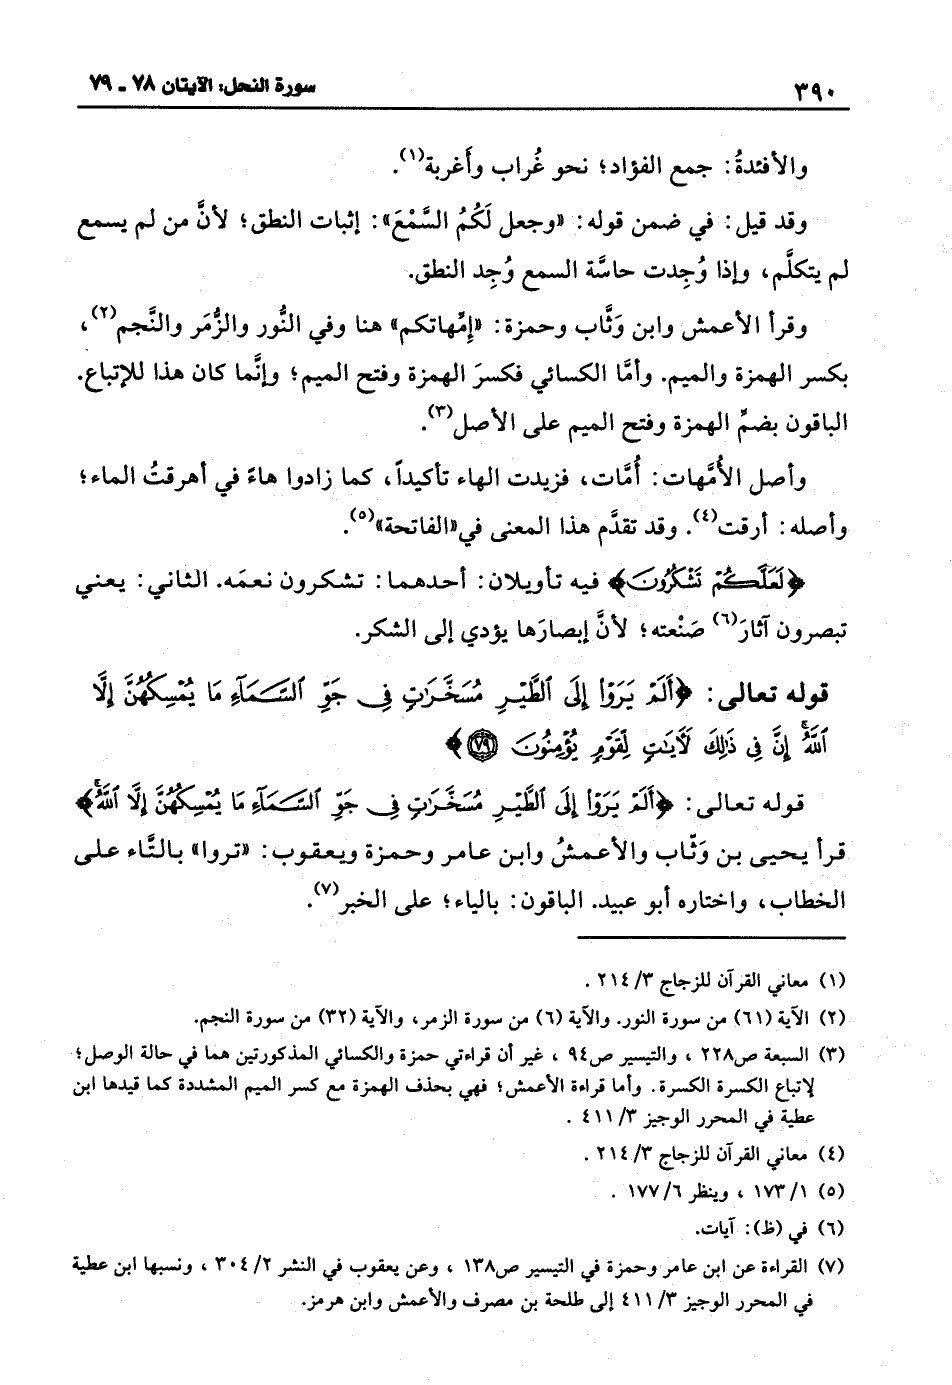 ٣٩٠
سورة النحل: الآيتان ٧٨ ـ ٧٩
والأفئدةُ: جمع الفؤاد؛ نحو غُراب وأَغربة(١).
وقد قيل: في ضمن قوله: «وجعل لَكُمُ السَّمْعَ»: إثبات النطق؛ لأنَّ من لم يسمع
لم يتكلَّم، وإذا وُجدت حاسَّة السمع وُجِد النطق.
وقرأ الأعمش وابن وَثَّاب وحمزة: «إِمِّهاتكم» هنا وفي النُّور والزُّمَر والنَّجم(٢)،
بكسر الهمزة والميم. وأمَّا الكسائي فكسرَ الهمزة وفتح الميم؛ وإنَّما كان هذا للإتباع.
الباقون بضمِّ الهمزة وفتح الميم على الأصل(٣).
وأصل الأُمَّهات: أُمَّات، فزيدت الهاء تأكيداً، كما زادوا هاءً في أهرقتُ الماء؛
وأصله: أرقت(٤). وقد تقدَّم هذا المعنى في«الفاتحة»(٥).
﴿لَعَلَّكُمْ تَشْكُرُونَ﴾ فيه تأويلان: أحدهما: تشكرون نعمَه. الثاني: يعني
تبصرون آثارَ(٦) صَنْعته؛ لأنَّ إبصارَها يؤدي إلى الشكر.
قوله تعالى: ﴿أَلَمْ يَرَوْا۟ إِلَى ٱلطَّيْرِ مُسَخَّرَٰتٍ فِى جَوِّ ٱلسَّمَآءِ مَا يُمْسِكُهُنَّ إِلَّا
ٱللَّهُ ۗ إِنَّ فِى ذَٰلِكَ لَـَٔايَٰتٍ لِّقَوْمٍ يُؤْمِنُونَ ٧٩﴾
قوله تعالى: ﴿أَلَمْ يَرَوْا۟ إِلَى ٱلطَّيْرِ مُسَخَّرَٰتٍ فِى جَوِّ ٱلسَّمَآءِ مَا يُمْسِكُهُنَّ إِلَّا ٱللَّهُ﴾
قرأ يحيى بن وَثّاب والأعمشُ وابن عامر وحمزة ويعقوب: «تروا» بالتَّاء على
الخطاب، واختاره أبو عبيد. الباقون: بالياء؛ على الخبر(٧).
(١) معاني القرآن للزجاج ٢١٤/٣ .
(٢) الآية (٦١) من سورة النور. والآية (٦) من سورة الزمر، والآية (٣٢) من سورة النجم.
(٣) السبعة ص٢٢٨ ، والتيسير ص٩٤ ، غير أن قراءتي حمزة والكسائي المذكورتين هما في حالة الوصل؛
لإتباع الكسرة الكسرة. وأما قراءة الأعمش؛ فهي بحذف الهمزة مع كسر الميم المشددة كما قيدها ابن
عطية في المحرر الوجيز ٤١١/٣ .
(٤) معاني القرآن للزجاج ٢١٤/٣ .
(٥) ١٧٣/١ ، وينظر ١٧٧/٦ .
(٦) في (ظ): آيات.
(٧) القراءة عن ابن عامر وحمزة في التيسير ص١٣٨ ، وعن يعقوب في النشر ٣٠٤/٢ ، ونسبها ابن عطية
في المحرر الوجيز ٤١١/٣ إلى طلحة بن مصرف والأعمش وابن هرمز.